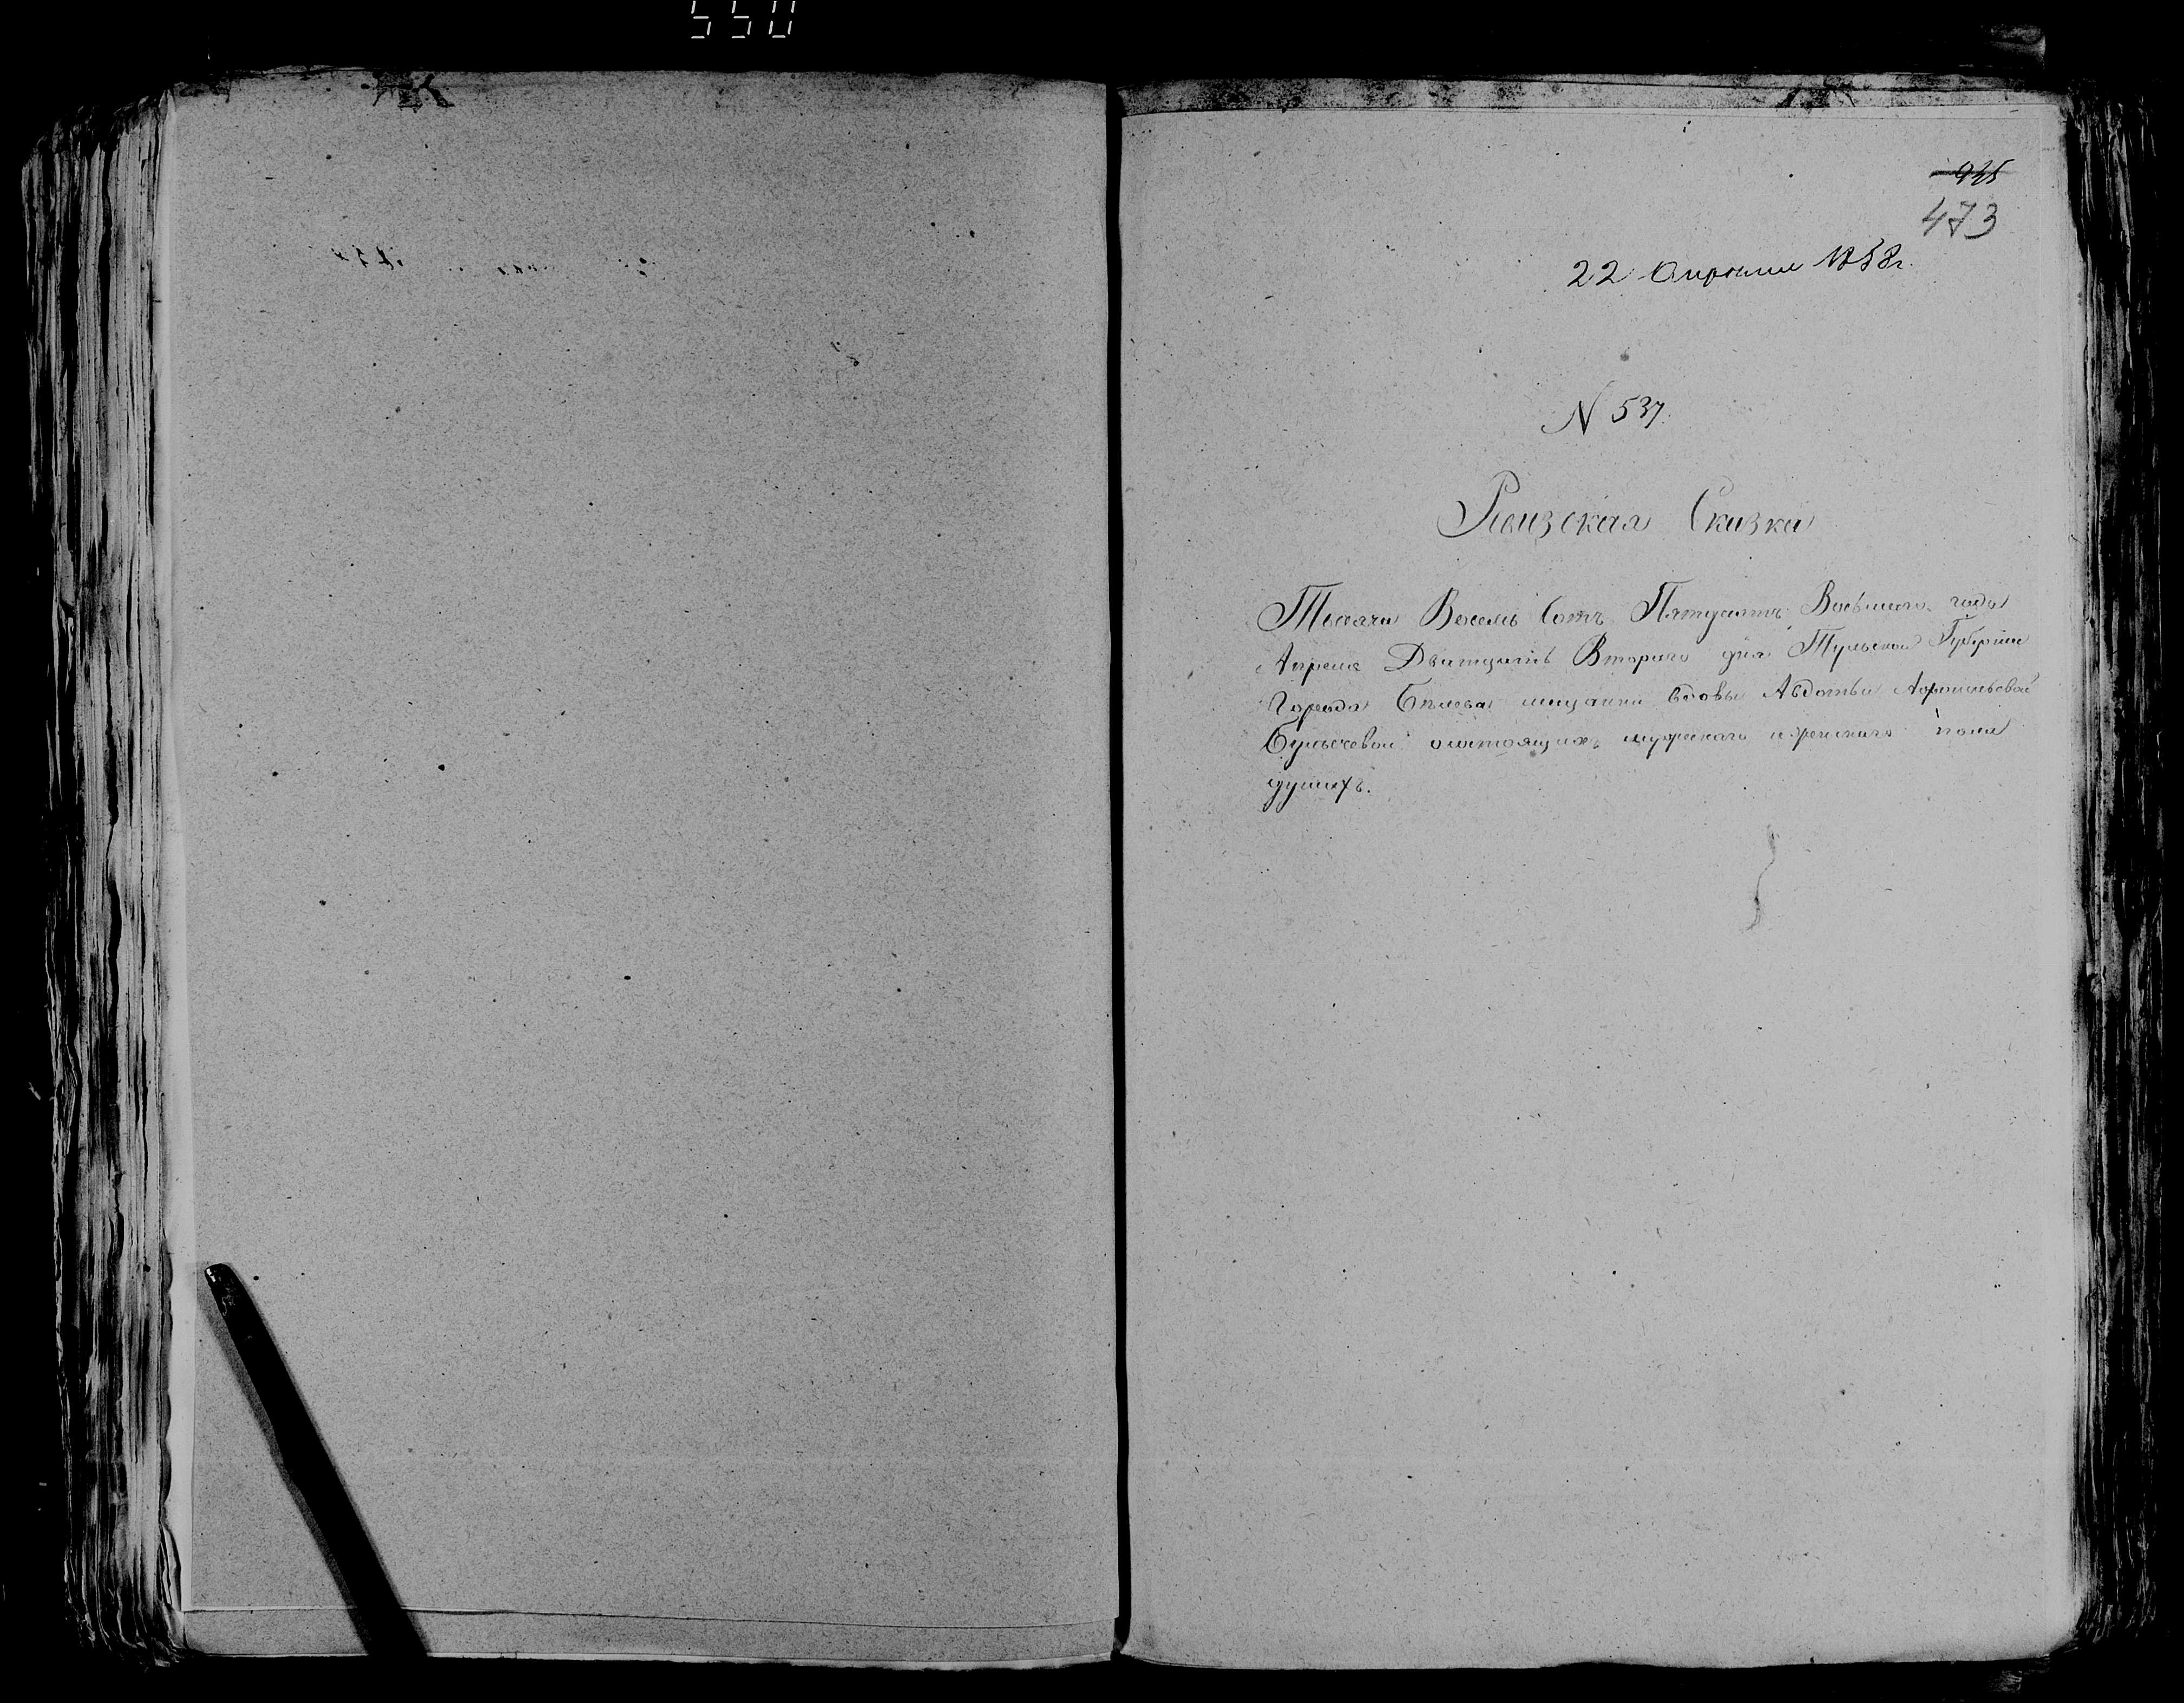 550
935
473
22 Апреля 1858 г.
N 537.
Ревизская Сказка
Тысяча Восемь Сотъ Пятьдесятъ Восьмаго года
Апреля Дватцать Втораго дня Тульской Губернии
Города Белева мещанки вдовы Авдотьи
о состоящихъ мужескаго и женскаго пола
душахъ.